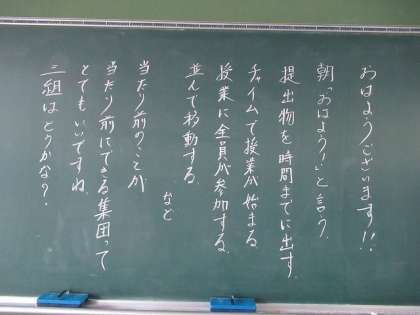 おはようございます!!
朝「おはよう!」と言う。
提出物を時間までに出す。
チャイムで授業が始まる。
授業に全員が参加する。
並んで移動する。
など
当たり前のことが
当たり前にできる集団って
とてもいいですね。
三組はどうかな?